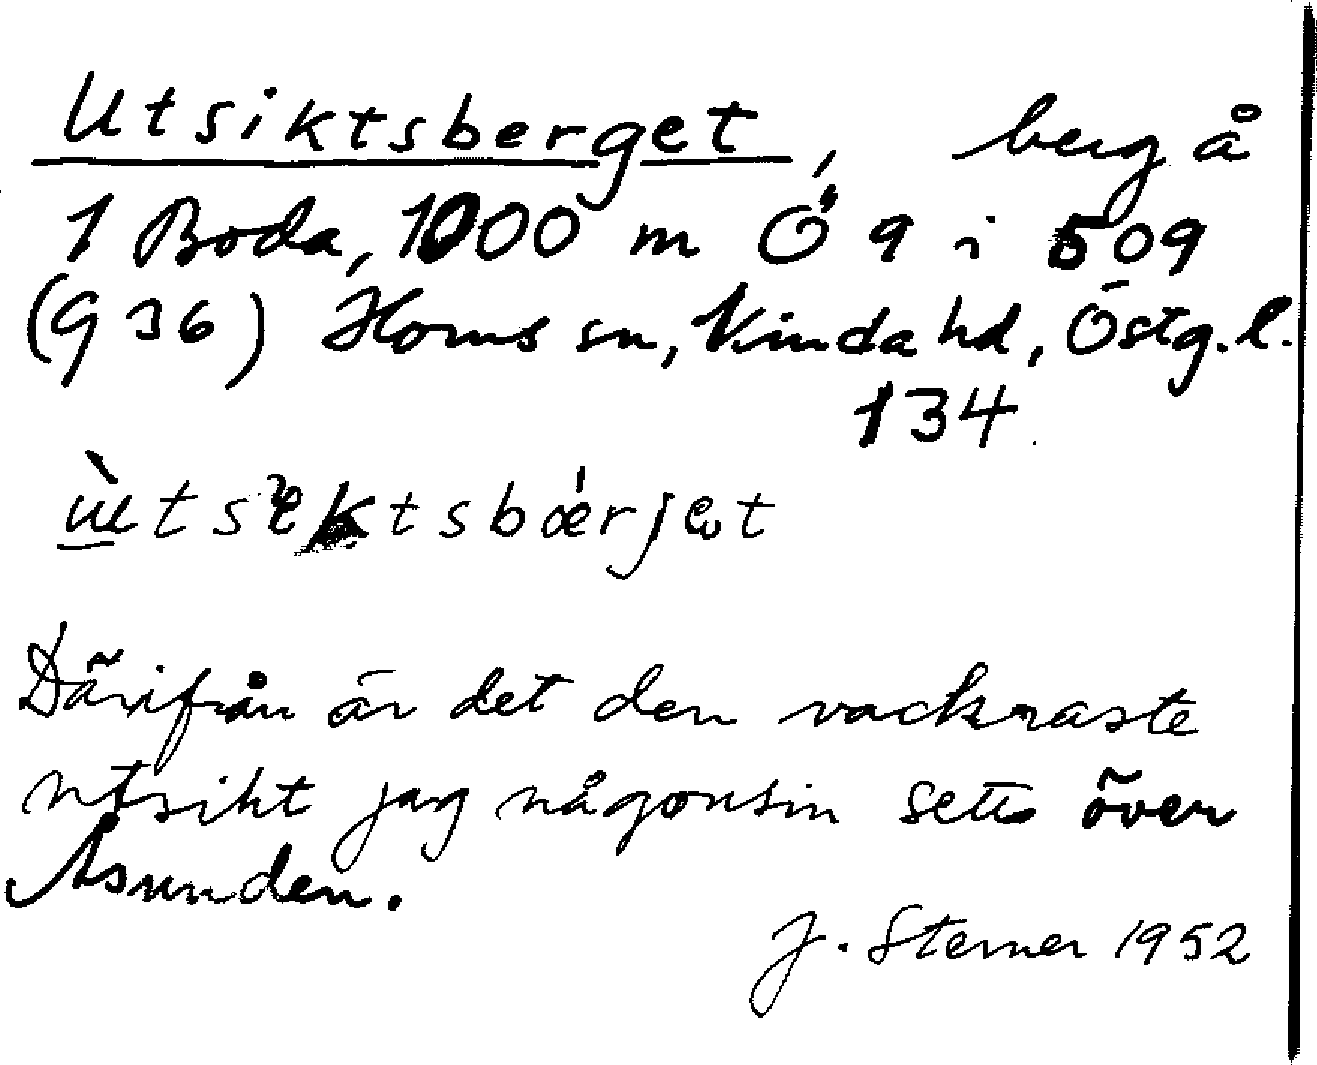 Utsiktsberget, berg å
1 Boda, 1000 m Ö 9 i 509
(936) Horns sn, Kinda hd, Östg.l.
134
Därifrån är det den vackraste
utsikt jag någonsin sett över
Åsunden.
J. Sterner 1952